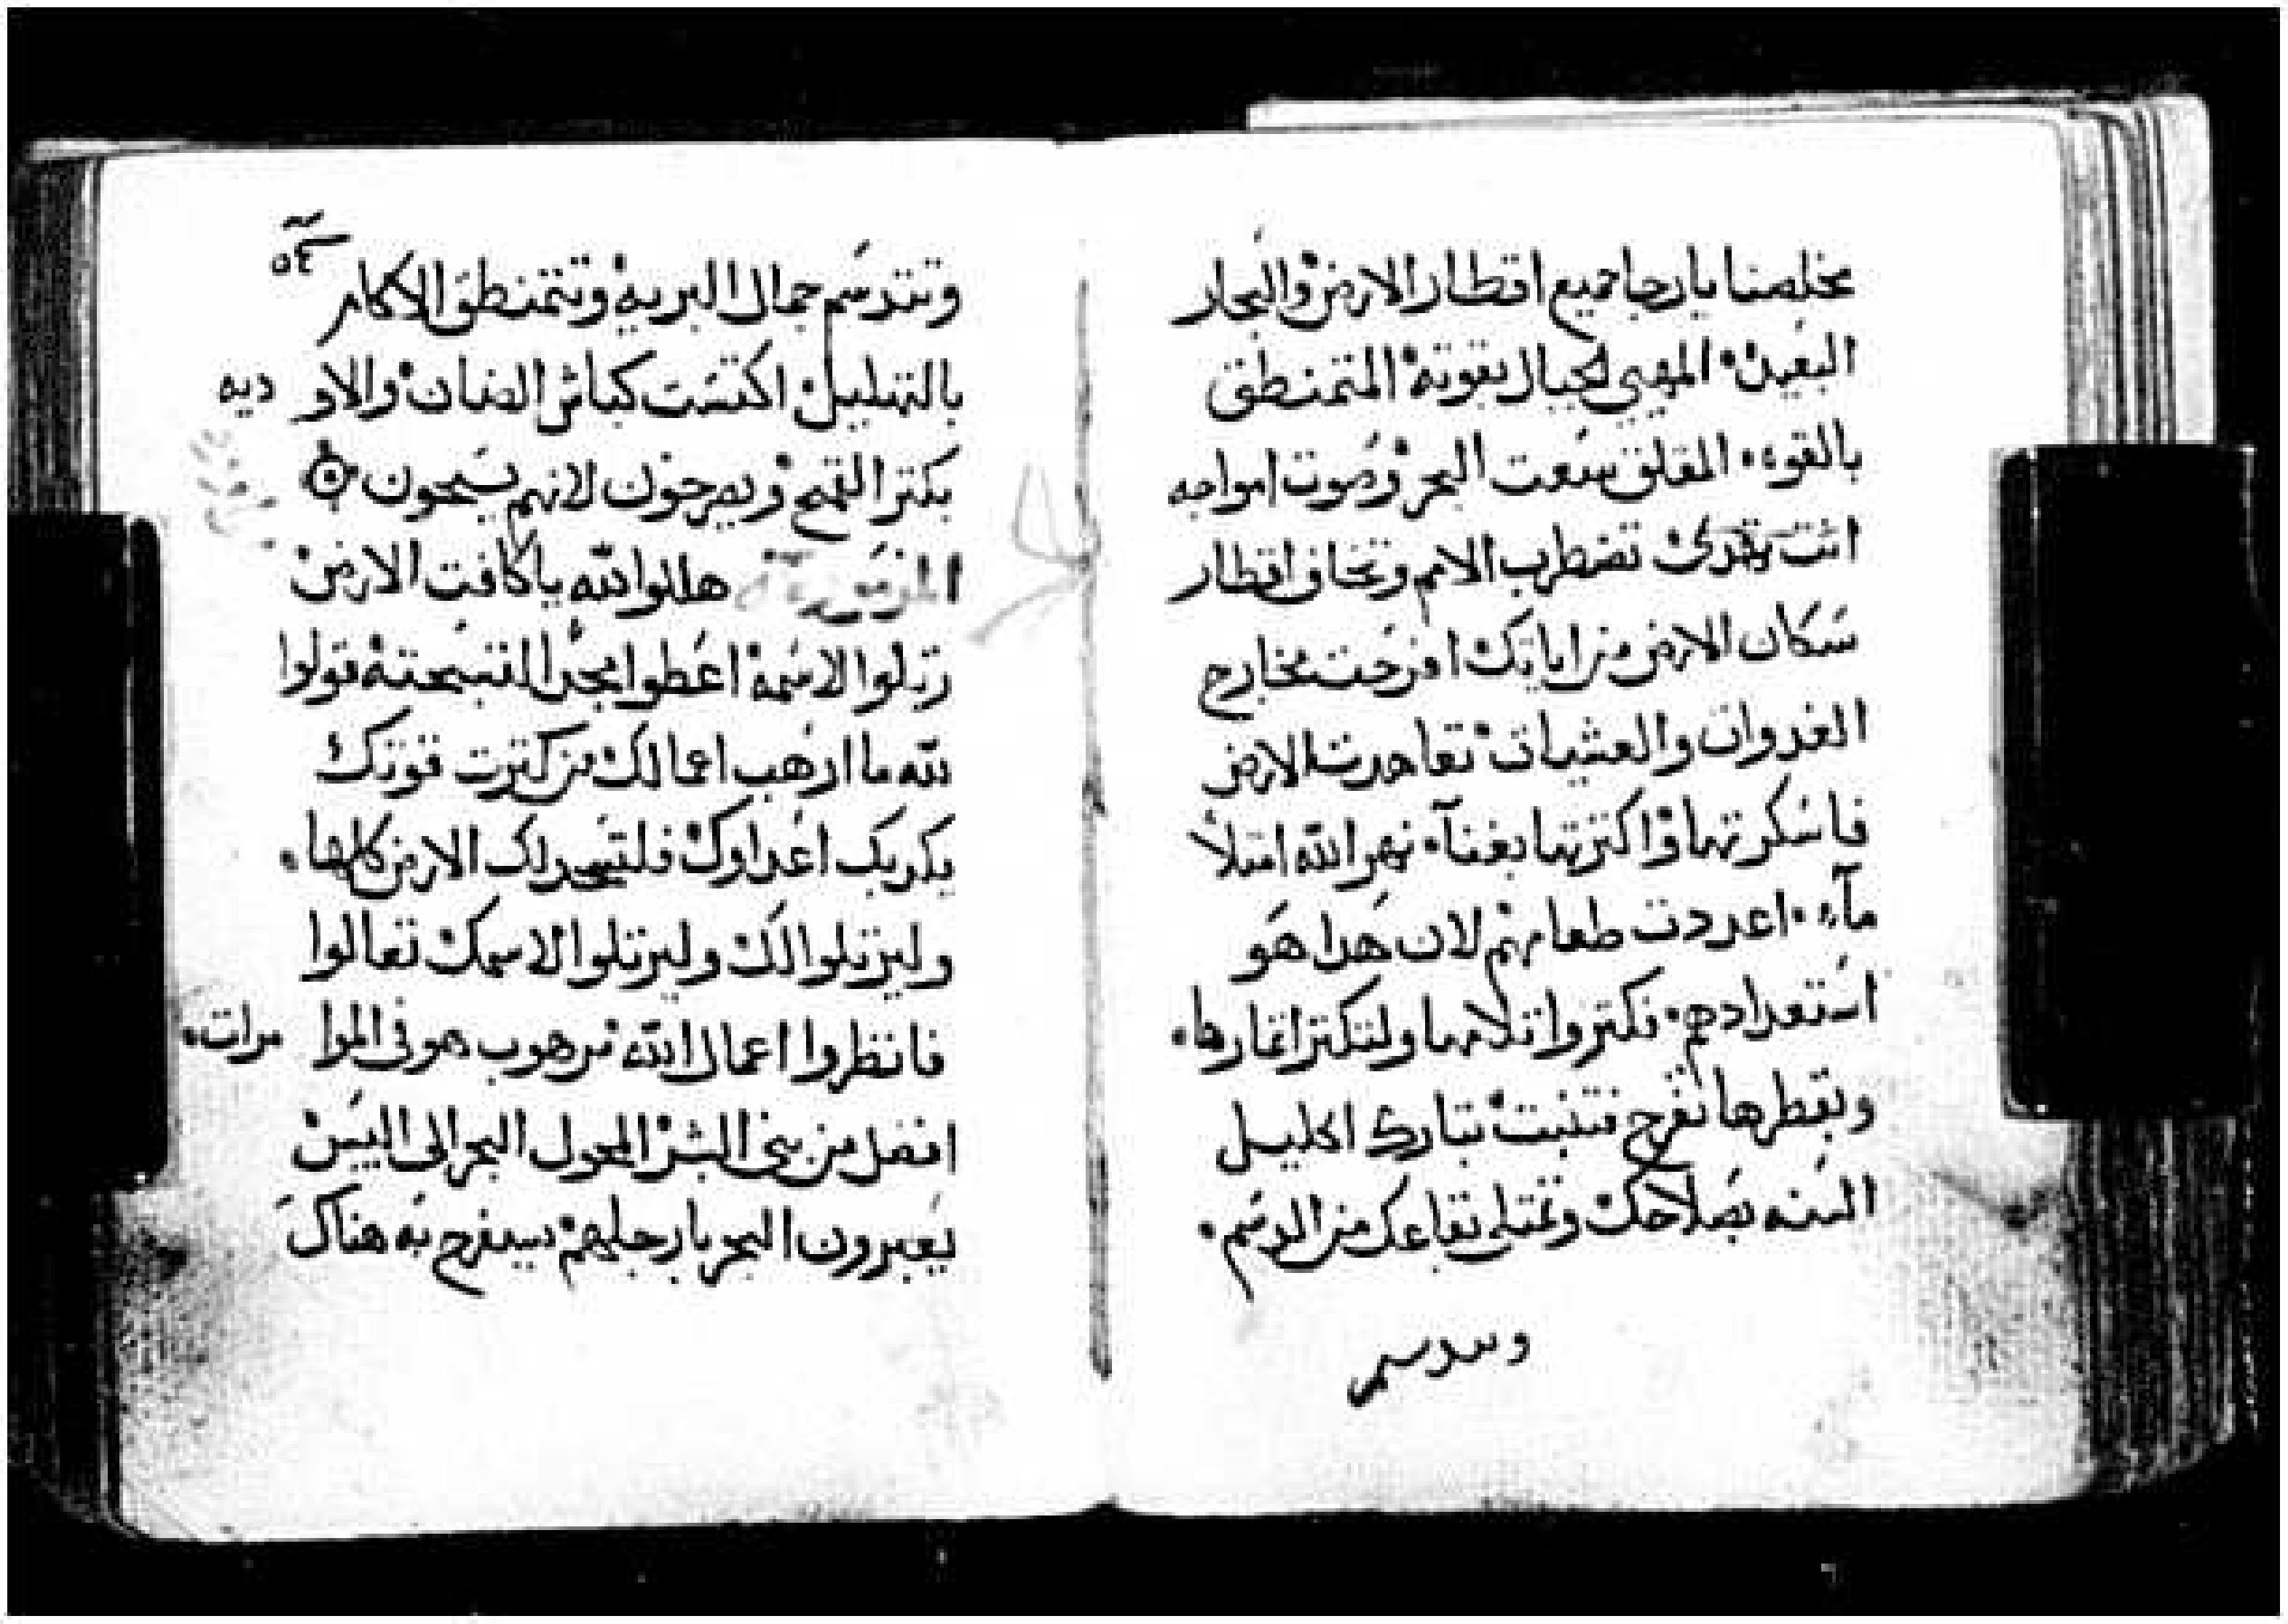 مخلصنا يا رجا جميع اقطار الارض والبحار
البعيده المهيي الجبال بقوته المتمنطق
بالقوه المقلق سعت البحر وصوت امواجه
انت تضطرب الامم وتخاف اقطار
سكان الارض من اياتك افرحت مخارج
الغدوات والعشيات تعاهدت الارض
فاسكرتها واكترتها بغنآ نهر الله امتلأ
مآء اعددت طعامهم لان هدا هو
استعدادهم تكتر واتلامها ولتكتر اتمارها
وبقطرها تفرح فتنبت تبارك اكليل
السنه بصلاحك وتمتلي بقاعك من الدسم
وتتدسم
٥٤
وتتدسم جمال البريه وتتمنطق الاكام
بالتهليل اكتست كباش الضان والاو ديه
بكتر القمح ويصرخون لانهم يسبحون
المزمور هللوا لله يا كافت الارض
رتلوا لاسمه اعطوا مجدا لتسبحته قولوا
لله ما ارهب اعمالك من كترت قوتك
يكدبك اعداوك فلتسجد لك الارض كلها
وليرتلوا لك وليرتلوا لاسمك تعالوا
فانظروا اعمال الله مرهوب هو في الموا مرات
افضل من بني البشر المحول البحر الى اليبس
يعبرون البحر بارجلهم سيفرح به هناك